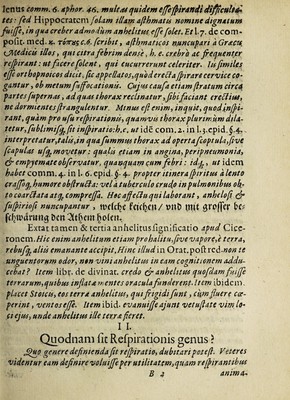 lenus comm. 6. aphor. 46. multas quidem esse spirandi difficulta-
tes: sed Hippocratem solam illam asthmatis nomine dignatum
fuisse, in qua creber admodum anhelitus esset foles. Et l. 7. de com-
posit. med. κ τόπους c. 6. scribit, asthmaticos nuncupari à Græcis
Medicis illos, qui extra febrim dense, h.e. crebro ac frequenter
respirant: ut facere solent, qui cucurrerunt celeriter. Iis similes
esse orthopnoicos dicit, sic appellatos, quòd erecta spirare cervice co-
gantur, ob metum suffocationis. Cujus causa etiam stratum circa
partes supernas, ad quas thorax reclinatur, sibi faciant erectius,
ne dormientes strangulentur. Minus est enim, inquit, quod inspi-
rant, quàm pro usu respirationis, quamvis thorax plurimùm dila-
tetur, sublimisq́; fit inspiratio: h.e. ut idē com. 2. in l. 3. epid. §. 4.
interpretatur, talis, in qua summus thorax ad operta scapula, sive
scapulas usq; movetur: qualis etiam in angina, peripneumonia,
& empyemate observatur, quanquam cum febri: idq́; ut idem
habet comm. 4. in l. 6. epid. §. 4. propter itinera spiritus à lento
crassoq́; humore obstructa: vel à tuberculo crudo in pulmonibus ob-
to coarctata atq; compressa. Hoc affectu qui laborant, anhelosi &
suspiriosi nuncupantur, welche keichen / und mit grosser be-
schwärung den Athem holen.
Extat tamen & tertia anhelitus significatio apud Cice-
ronem. Hic enim anhelitum etiam pro halitu, sive vapore, è terra,
rebusq́; aliis emanante accipit. Hinc illud in Orat. post red. non te
unguentorum odor, non vini anhelitus in eam cognitionem addu-
cebat? Item libr. de divinat. credo & anhelitus quosdam fuisse
terrarum, quibus inflatæ mentes oracula funderent. Item ibidem.
placet Stoicis, eos terræ anhelitus, qui frigidi sunt, cùm fluere cœ-
perint, ventos esse. Item ibid. evanuisse ajunt vetustate vim lo-
ci ejus, unde anhelitus ille terræ fieret.
II.
Quodnam sit Respirationis genus?
Quo genere definienda sit respiratio, dubitari potest. Veteres
videntur eam definire voluisse per utilitatem, quam respirantibus
B 2 anima-